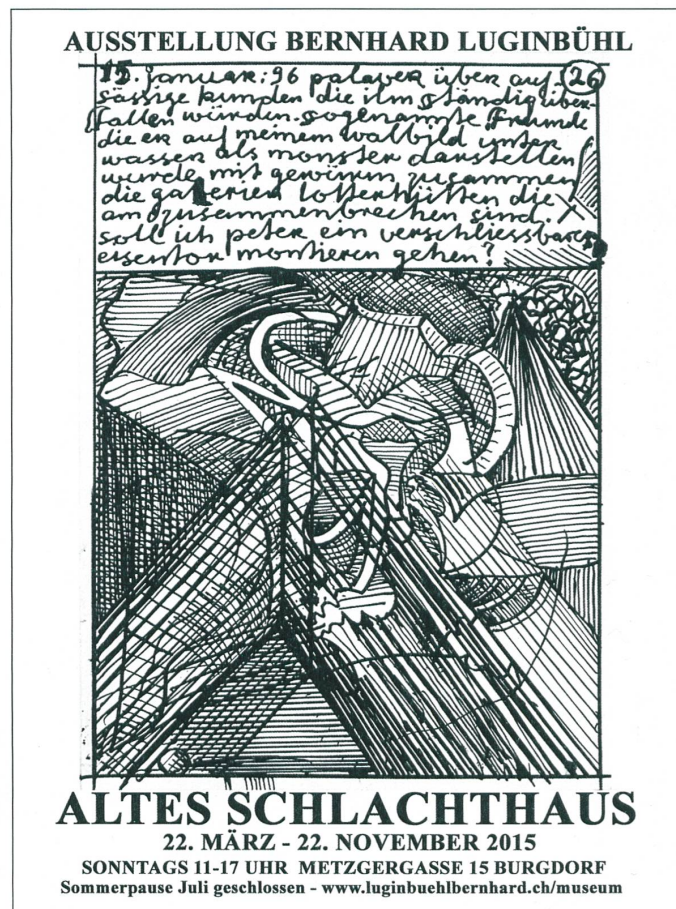 AUSSTELLUNG BERNHARD LUGINBÜHL
15. januar: 96 palaver über auf- 26
sässige kunden die ihm ständig über-
fallen würden. sogenannte freunde
die er auf meinem walbild unter
wasser als monster darstellen
würde mit gewürm zusammen
die galerien lotterhütten die
am zusammenbrechen sind.
soll ich peter ein verschliessbares
eisentor montieren gehen?
ALTES SCHLACHTHAUS
22. MÄRZ - 22. NOVEMBER 2015
SONNTAGS 11-17 UHR METZGERGASSE 15 BURGDORF
Sommerpause Juli geschlossen - www.luginbuehlbernhard.ch/museum